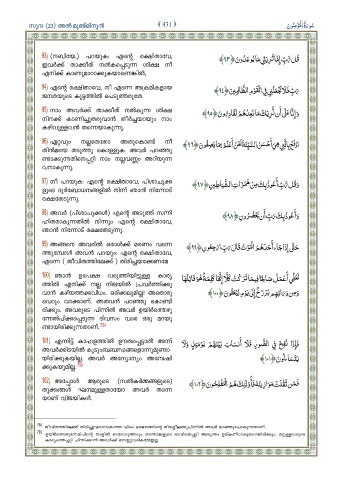 സൂറ (23) അൽ മുഅ്മിനൂൻ
﴾ 431 ﴿
سورة المؤمنون
93) (നബിയേ,) പറയുക: എന്റെ രക്ഷിതാവേ,
ഇവർക്ക് താക്കീത് നൽകപ്പെടുന്ന ശിക്ഷ നീ
എനിക്ക് കാണുമാറാക്കുകയാണെങ്കിൽ,
قُل رَّبِّ إِمَّا تُرِيَنِّي مَا يُوعَدُونَ ﴿٩٣﴾
94) എന്റെ രക്ഷിതാവേ, നീ എന്നെ അക്രമികളായ
ജനതയുടെ കൂട്ടത്തിൽ പെടുത്തരുതേ.
رَبِّ فَلَا تَجْعَلْنِي فِي الْقَوْمِ الظَّالِمِينَ ﴿٩٤﴾
95) നാം അവർക്ക് താക്കീത് നൽകുന്ന ശിക്ഷ
നിനക്ക് കാണിച്ചുതരുവാൻ തീർച്ചയായും നാം
കഴിവുള്ളവൻ തന്നെയാകുന്നു.
وَإِنَّا عَلَىٰ أَن نُّرِيَكَ مَا نَعِدُهُمْ لَقَادِرُونَ ﴿٩٥﴾
96) ഏറ്റവും നല്ലതേതോ അതുകൊണ്ട് നീ
തിന്മയെ തടുത്തു കൊള്ളുക. അവർ പറഞ്ഞു
ണ്ടാക്കുന്നതിനെപ്പറ്റി നാം നല്ലവണ്ണം അറിയുന്ന
വനാകുന്നു.
ادْفَعْ بِالَّتِي هِيَ أَحْسَنُ السَّيِّئَةَ نَحْنُ أَعْلَمُ بِمَا يَصِفُونَ ﴿٩٦﴾
97) നീ പറയുക: എന്റെ രക്ഷിതാവേ, പിശാചുക്ക
ളുടെ ദുർബോധനങ്ങളിൽ നിന്ന് ഞാൻ നിന്നോട്
രക്ഷതേടുന്നു.
وَقُل رَّبِّ أَعُوذُ بِكَ مِنْ هَمَزَاتِ الشَّيَاطِينِ ﴿٩٧﴾
98) അവർ (പിശാചുക്കൾ) എന്റെ അടുത്ത് സന്നി
ഹിതരാകുന്നതിൽ നിന്നും എന്റെ രക്ഷിതാവേ,
ഞാൻ നിന്നോട് രക്ഷതേടുന്നു.
وَأَعُوذُ بِكَ رَبِّ أَن يَحْضُرُونِ ﴿٩٨﴾
99) അങ്ങനെ അവരിൽ ഒരാൾക്ക് മരണം വന്നെ
ത്തുമ്പോൾ അവൻ പറയും: എന്റെ രക്ഷിതാവേ,
എന്നെ ( ജീവിതത്തിലേക്ക് ) തിരിച്ചയക്കേണമേ
حَتَّىٰ إِذَا جَاءَ أَحَدَهُمُ الْمَوْتُ قَالَ رَبِّ ارْجِعُونِ ﴿٩٩﴾
100) ഞാൻ ഉപേക്ഷ വരുത്തിയിട്ടുള്ള കാര്യ
ത്തിൽ എനിക്ക് നല്ല നിലയിൽ പ്രവർത്തിക്കു
വാൻ കഴിയത്തക്കവിധം. ഒരിക്കലുമില്ല! അതൊരു
വെറും വാക്കാണ്. അതവൻ പറഞ്ഞു കൊണ്ടി
രിക്കും. അവരുടെ പിന്നിൽ അവർ ഉയിർത്തെഴു
ന്നേൽപിക്കപ്പെടുന്ന ദിവസം വരെ ഒരു മറയു
ണ്ടായിരിക്കുന്നതാണ്.
لَعَلِّي أَعْمَلُ صَالِحًا فِيمَا تَرَكْتُ كَلَّا إِنَّهَا كَلِمَةٌ هُوَ قَائِلُهَا
وَمِن وَرَائِهِم بَرْزَخٌ إِلَىٰ يَوْمِ يُبْعَثُونَ ﴿١٠٠﴾
101) എന്നിട്ട് കാഹളത്തിൽ ഊതപ്പെട്ടാൽ അന്ന്
അവർക്കിടയിൽ കുടുംബബന്ധങ്ങളൊന്നുമുണ്ടാ
യിരിക്കുകയില്ല. അവർ അന്യോന്യം അന്വേഷി
ക്കുകയുമില്ല.
فَإِذَا نُفِخَ فِي الصُّورِ فَلَا أَنسَابَ بَيْنَهُمْ يَوْمَئِذٍ وَلَا
يَتَسَاءَلُونَ ﴿١٠١﴾
102) അപ്പോൾ ആരുടെ (സൽകർമങ്ങളുടെ)
തൂക്കങ്ങൾ ഘനമുള്ളതായോ അവർ തന്നെ
യാണ് വിജയികൾ.
فَمَن ثَقُلَتْ مَوَازِينُهُ فَأُولَٰئِكَ هُمُ الْمُفْلِحُونَ ﴿١٠٢﴾